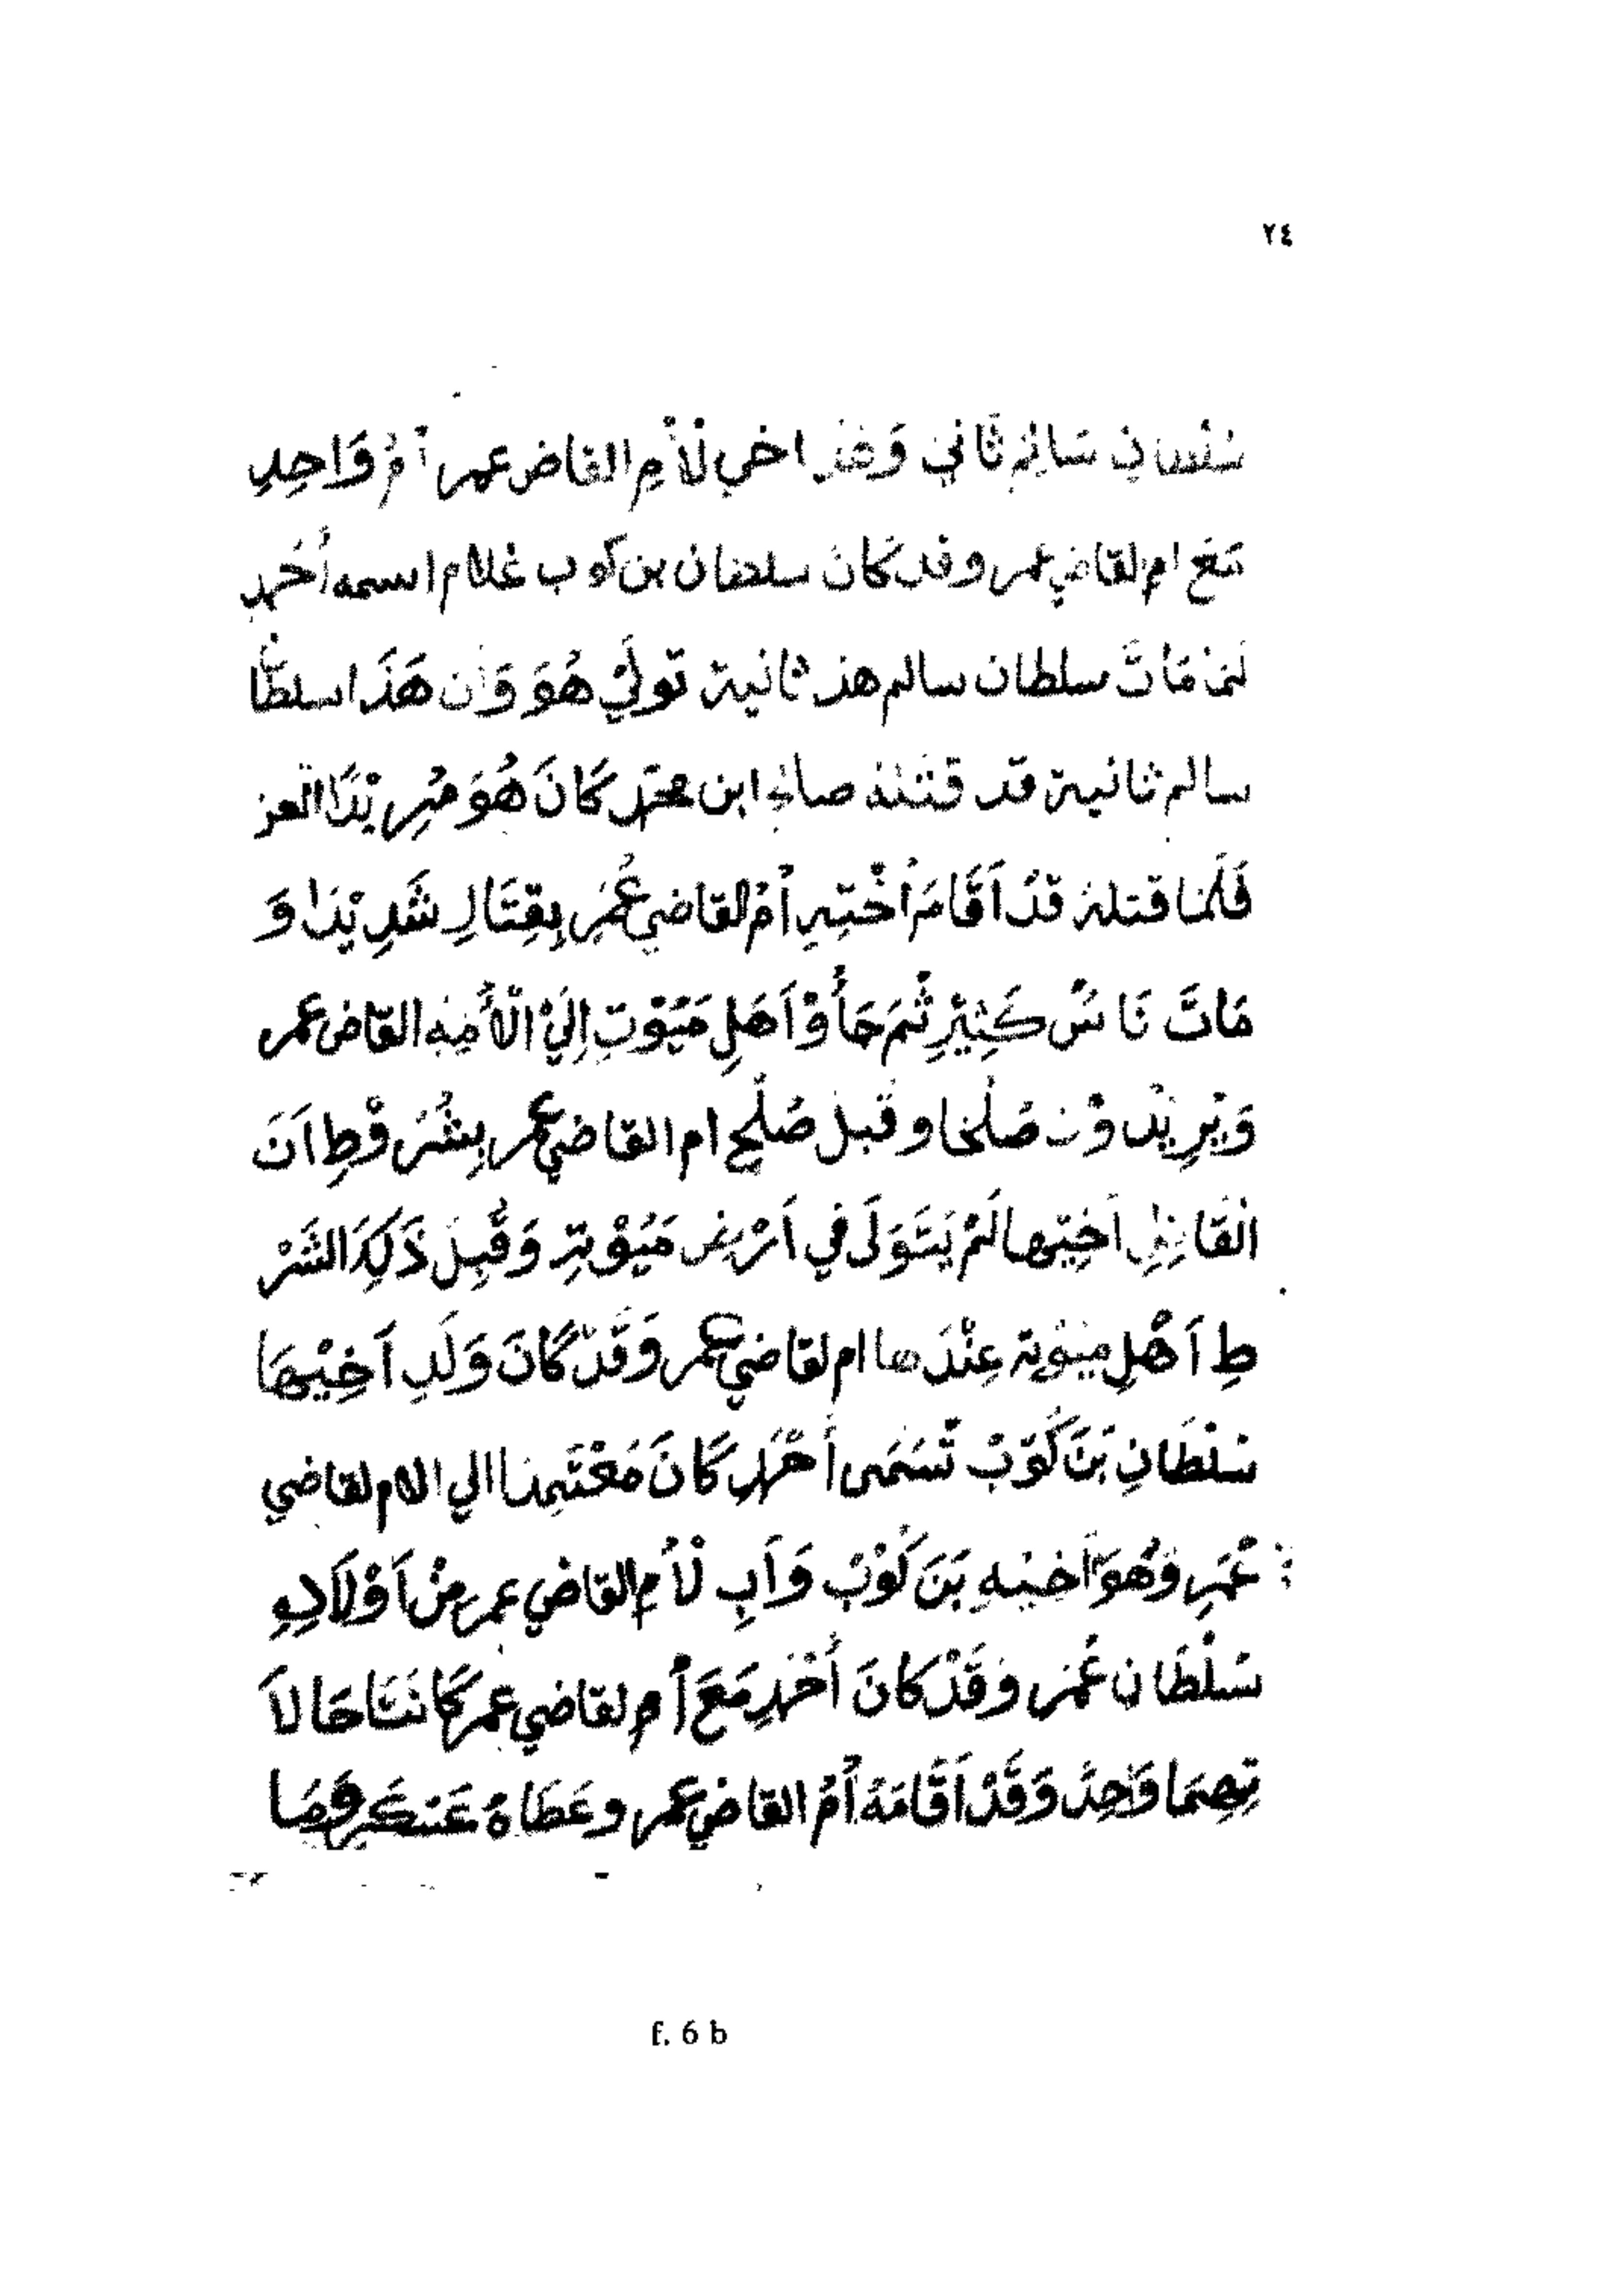 ٢٤
سلطان سالم ثاني وهذ اخي لأم القاض عمر أم واحد
مع ام لقاضي عمر وقد كان سلطان بن كوب غلام اسمه أحمد
لما مات سلطان سالم هذ ثانية تولي هو وان هذا سلطا
سالم ثانية قد قتله صالح ابن محمد كان هو مريدا العز
فلما قتله قد أقام أخته أم القاضي عمر بقتال شديدا و
مات ناس كثير ثم جأوا أهل ميوت إلي الأمه القاض عمر
ويريدون صلحا وقبل صلح ام القاضي عمر بشروط أن
أخيها لم يتولى في أرض ميوتة وقبل ذلك الشر
ط أهل ميوتة عندها ام لقاضي عمر وقد كان ولد أخيها
سلطان بن كوب تسمى أحمد كان معتمدا الي الام لقاضي
عمر وهو أخيه بن كوب وأب لأم القاضي عمر من أولاد
سلطان عمر وقد كان أحمد مع أم لقاضي عمر كانتا حالا
تهما واحد وقد أقامه أم القاضي عمر وعطاه عسكر
f. 6 b